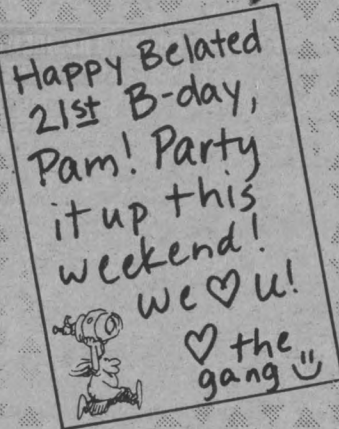 Happy Belated
21st B-day,
Pam! Party
it up this
weekend!
We ♡ u!
♡ the
gang